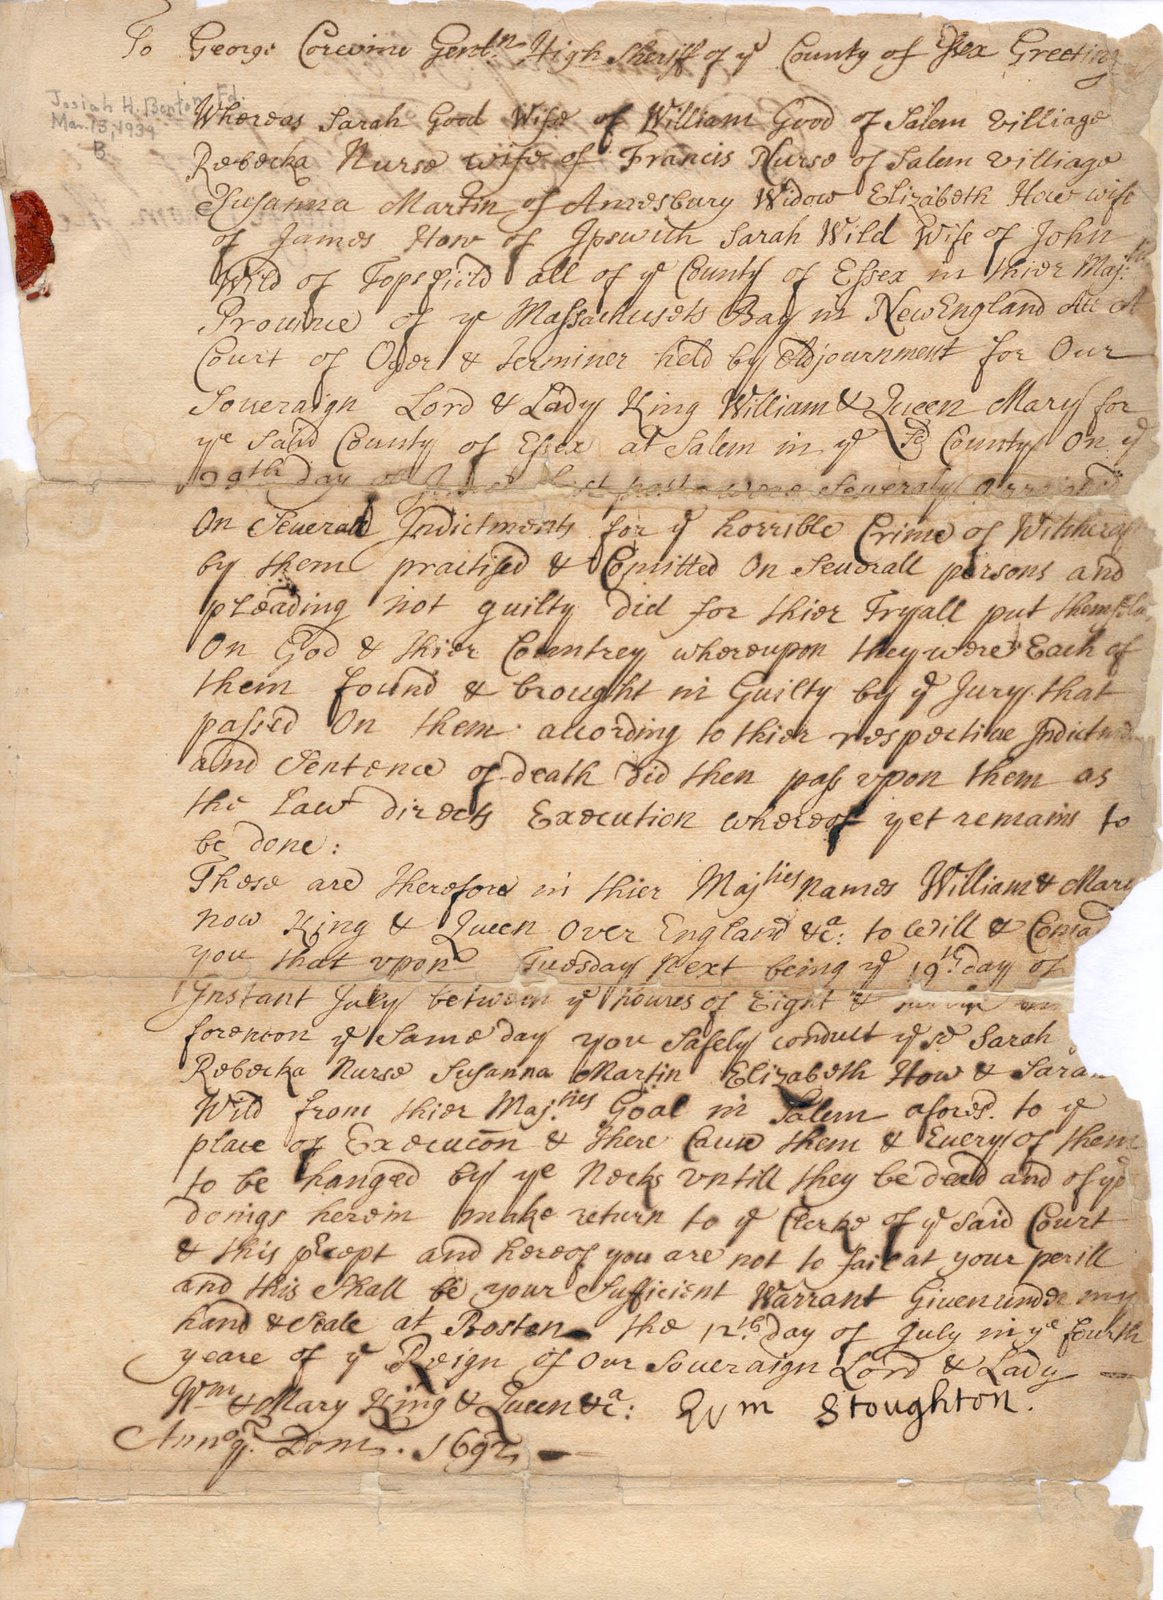 To George Corwine Gentln High Sheriff of ye County of Essex Greeting
Josiah H. Benton Fd.
Mar. 13, 1939
B
Whereas Sarah Good Wife of William Good of Salem Villiage
Rebecka Nurse wife of Francis Nurse of Salem Villiage
Susanna Martin of Amesbury Widow Elizabeth How wife
of James How of Ipswich Sarah Wild Wife of John
Wild of Topsfield all of ye County of Essex in thier Maj.ties
Province of ye Massachusets Bay in New England Att A
Court of Oyer & Terminer held by Adjournment for Our
Soueraign Lord & Lady King William & Queen Mary for
ye said County of Essex at Salem in ye sd County On ye
29th day of June last past were Seueraly Arraigned
On Seuerall Indictments for ye horrible Crime of Witchcraft
by them practised & Comitted On Seuerall persons and
pleading not guilty did for thier Tryall put themselues
On God & thier Countrey whereupon they were Each of
them found & brought in Guilty by ye Jury that
passed On them according to thier respectiue Indictm
and Sentence of death did then pass vpon them as
the Law directs Execution whereof yet remains to
be done:
These are therefore in thier Majties Names William & Mary
now King & Queen Over England &ca: to Will & Coma
you that vpon Tuesday next being ye 19th day of
Instant July between ye houres of Eight &
forenoon ye same day you safely conduct ye sd Sarah
Rebecka Nurse Susanna Martin Elizabeth How & Sarah
Wild from thier Maj.ties Goal in Salem aforesd. to ye
place of Execucon & there Cause them & Euery of them
to be hanged by ye Necks vntill they be dead and of yor
doings herein make return to ye Clerke of ye said Court
& this prcept and hereof you are not to fail at your perill
and this Shall be your Sufficient Warrant Given under my
hand & Seale at Boston the 12th. day of July in ye fourth
yeare of ye Reign of Our Soueraign Lord & Lady
Wm & Mary King & Queen &ca: Wm Stoughton.
Annoq. Dom. 1692